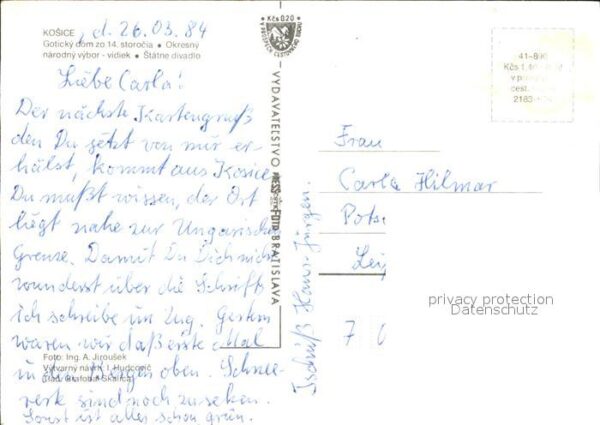 , d. 26.03.84
KOŠICE
Gotický dom zo 14. storočia • Okresný
národný výbor - vidiek • Štátne divadlo
Liebe Carla!
Der nächste Kartengruß
den Du jetzt von mir er-
hälst, kommt aus Kosice
Du mußt wissen, der Ort
liegt nahe zur Ungarische
Grenze. Damit Du Dich nich
wunderst über die Schrift
ich schreibe im Zug. Gestern
waren wir daß erste Mal
in den oben. Schnee-
sind noch zu sehen.
Sonst ist alles schon grün.
Foto: Ing. A. Jiroušek
Výtvarný návrh: I. Hudcovič
Tlač: Grafobal Skalica
Kčs 0,20
VYDAVATEĽSTVO PRESSFOTO BRATISLAVA
Gruß Hans-Jürgen
41-890
Kčs 1,
v
cest.
2183
Frau
Carla Hilmar
Pots
Lei
7
privacy protection
Datenschutz